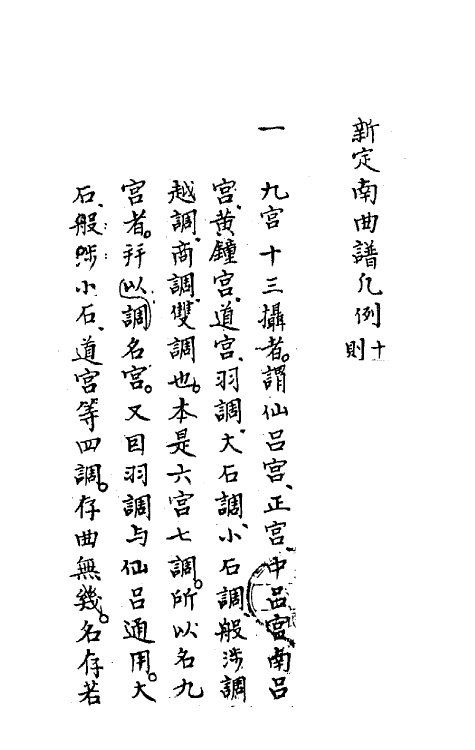 新定南曲譜凡例十則
一 九宮十三攝者。謂仙呂宮、正宮、中呂宮、南呂
宮、黃鐘宮、道宮、羽調、大石調、小石調、般涉調
越調、商調、雙調也。本是六宮七調。所以名九
宮者。拜以調名宮。又因羽調与仙呂通用。大
石、般涉、小石、道宮等四調。存曲無幾。名存若